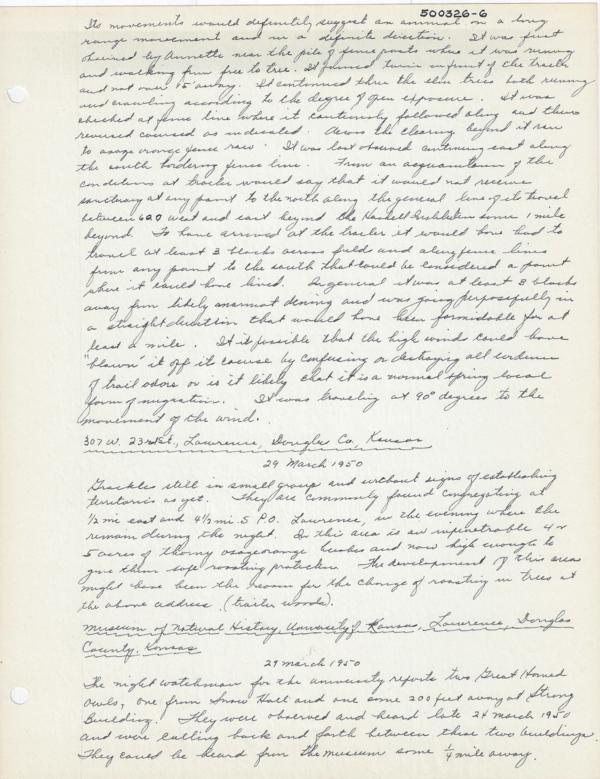 500326-6
Its movements would definitely suggest an animal on a long
range movement and in a definite direction. It was first
observed by Annette near the pile of fence posts where it was running
and walking from tree to tree. It turned in front of the trailer
and not over 15' away. It continued thru the elm trees both running
and crawling according to the degree of open exposure. It was
checked at fence line where it cautiously followed along and then
reversed course as indicated. Across the clearing beyond it ran
to osage orange fence row. It was last observed continuing east along
the south bordering fence line. From an acquaintance of the
conditions at trailer would say that it would not receive
sanctuary at any point to the north along the general line of its travel
between 620 west and east beyond the Haskell some 1 mile
beyond. To have arrived at the trailer it would have had to
travel at least 3 blocks across field and along fence lines
from any point to the south that could be considered a point
where it could have lived. In general it was at least 3 blocks
away from likely and was going purposefully in
a straight direction that would have been formidable for at
least a mile. It is possible that the high winds could have
"blown" it off its course by confusing or destroying all evidence
of trail odors or is it likely that it is a normal spring local
form of migration. It was traveling at 90° degrees to the
movement of the wind.
307 W. 23rd St., Lawrence, Douglas Co., Kansas
29 March 1950
Grackles still in small group and without signs of establishing
territories as yet. They are commonly found congregating at
1/2 mi east and 4 1/2 mi. S P.O. Lawrence, in the evening where the
remain during the night. In this area is an impenetrable 4 or
5 acres of thorny osage orange bushes and now high enough to
give them safe roosting protection. The development of this area
might have been the reason for the change of roosting in trees at
the above address (trailer woods).
Museum of Natural History, University of Kansas, Lawrence, Douglas
County, Kansas
29 March 1950
The night watchman for the university reports two Great Horned
Owls, one from Snow Hall and one some 200 feet away at Strong
Building. They were observed and heard late 24 March 1950
and were calling back and forth between these two buildings.
They could be heard from the museum some 1/4 mile away.